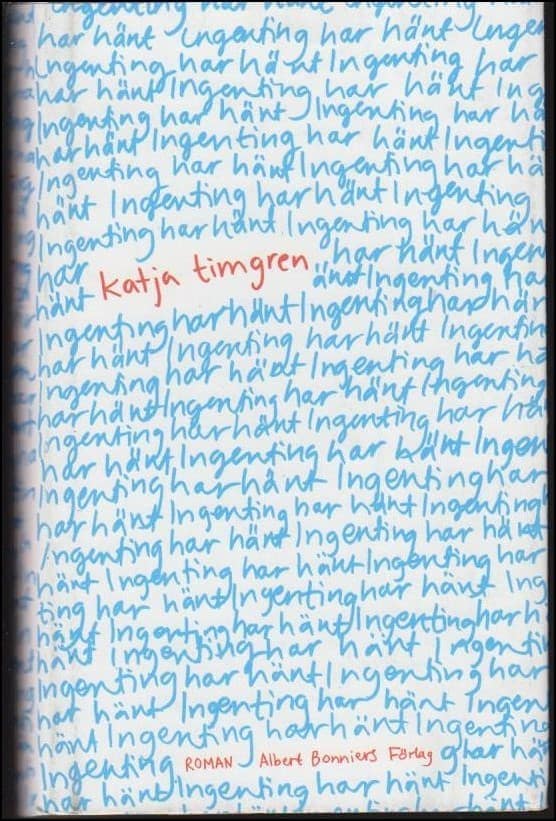 har hänt Ingenting har hänt Ingen
Ingenting har hänt Ingenting har
har hänt Ingenting har hänt Ing
Ingenting har hänt Ingenting har hä
har hänt Ingenting har hänt Ingenti
Ingenting har hänt Ingenting har hä
hänt Ingenting har hänt Ingenting
Ingenting har hänt Ingenting har hän
har har hänt Ingen
katja timgren
hänt änt Ingenting ha
Ingenting har hänt Ingenting har hän
har hänt Ingenting har hänt Ingentin
Ingenting har hänt Ingenting har hä
har hänt Ingenting har hänt Ingenting
Ingenting har hänt Ingenting har hä
har hänt Ingenting har hänt Ingen
Ingenting har hänt Ingenting har
har hänt Ingenting har hänt Ingenting
Ingenting har hänt Ingenting har hänt
hänt Ingenting har hänt Ingenting har
ting har hänt Ingenting har hänt Ing
hänt Ingenting har hänt Ingenting har h
hänt Ingenting har hänt Ingenti
Ingenting har hänt Ingenting har
har hänt Ingenting har hänt Ingen
hänt Ingenting har hänt Ingenting
Ingenting ROMAN Albert Bonniers Förlag g har hä
har hänt Ingenting har hänt Ingenti